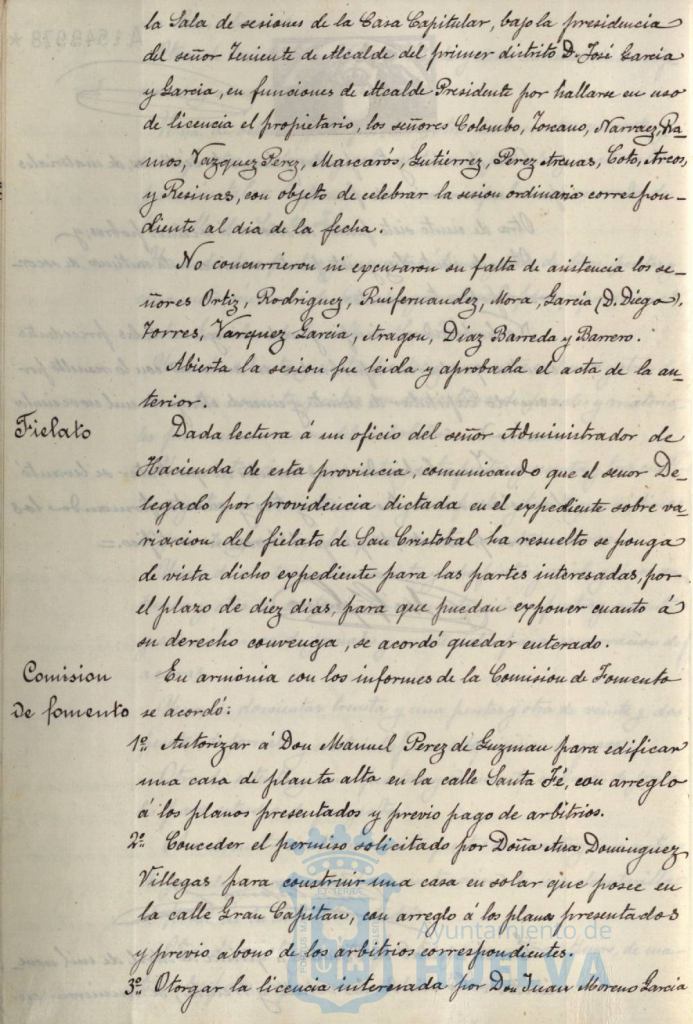 la Sala de sesiones de la Casa Capitular, bajo la presidencia
del señor Teniente de Alcalde del primer distrito D. José García
y García, en funciones de Alcalde Presidente por hallarse en uso
de licencia el propietario, los señores Colombo, Toscano, Narvaez, Ra-
mos, Vazquez Perez, Mascarós, Gutiérrez, Perez Arenas, Coto, Arcos,
y Resinas, con objeto de celebrar la sesion ordinaria correspon-
diente al dia de la fecha.
No concurrieron ni excusaron su falta de asistencia los se-
ñores Ortiz, Rodriguez, Ruifernandez, Mora, García (D. Diego),
Torres, Vazquez Garcia, Aragon, Diaz Barreda y Barrero.
Abierta la sesion fue leida y aprobada el acta de la an-
terior.
Fielato
Dada lectura á un oficio del señor Administrador de
Hacienda de esta provincia, comunicando que el señor De-
legado por providencia dictada en el expediente sobre va-
riacion del fielato de San Cristobal ha resuelto se ponga
de vista dicho expediente para las partes interesadas, por
el plazo de diez dias, para que puedan exponer cuanto á
su derecho convenga, se acordó quedar enterado.
Comision
de fomento
En armonia con los informes de la Comision de Fomento
se acordó:
1º Autorizar á Don Manuel Perez de Guzman para edificar
una casa de planta alta en la calle Santa Fé, con arreglo
á los planos presentados y previo pago de arbitrios.
2º Conceder el permiso solicitado por Doña Ana Dominguez
Villegas para construir una casa en solar que posee en
la calle Gran Capitan, con arreglo á los planos presentados
y previo abono de los arbitrios correspondientes.
3º Otorgar la licencia interesada por Don Juan Moreno Garcia
Ayuntamiento de
HUELVA